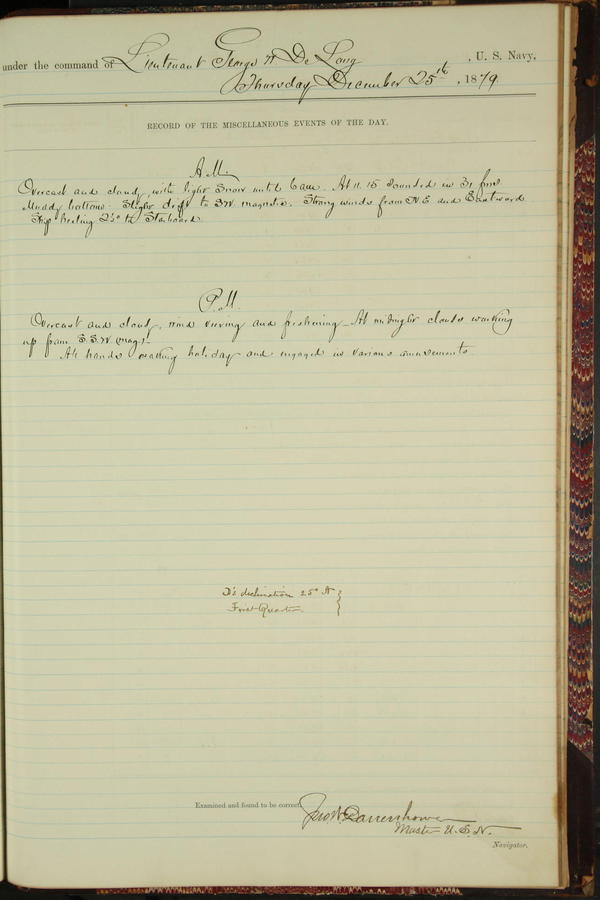 under the command of Lieutenant George W De Long, U. S. Navy,
Thursday December 25th, 1879
RECORD OF THE MISCELLANEOUS EVENTS OF THE DAY.
A.M.
Overcast and cloudy, with light snow until 6 am. At 11.15 sounded in 31 fms
Muddy bottom. Slight drift to SW. magnetic. Strong winds from N.E. and Eastward
Ship heeling 2½° to Starboard
P.M.
Overcast and cloudy, wind veering and freshening. At midnight clouds working
up from S.S.W (mag).
All hands making holiday and engaged in various amusements
D's declination 25° N
First Quarter
Examined and found to be correct.
Jno W Danenhower
Master U.S.N.
Navigator.